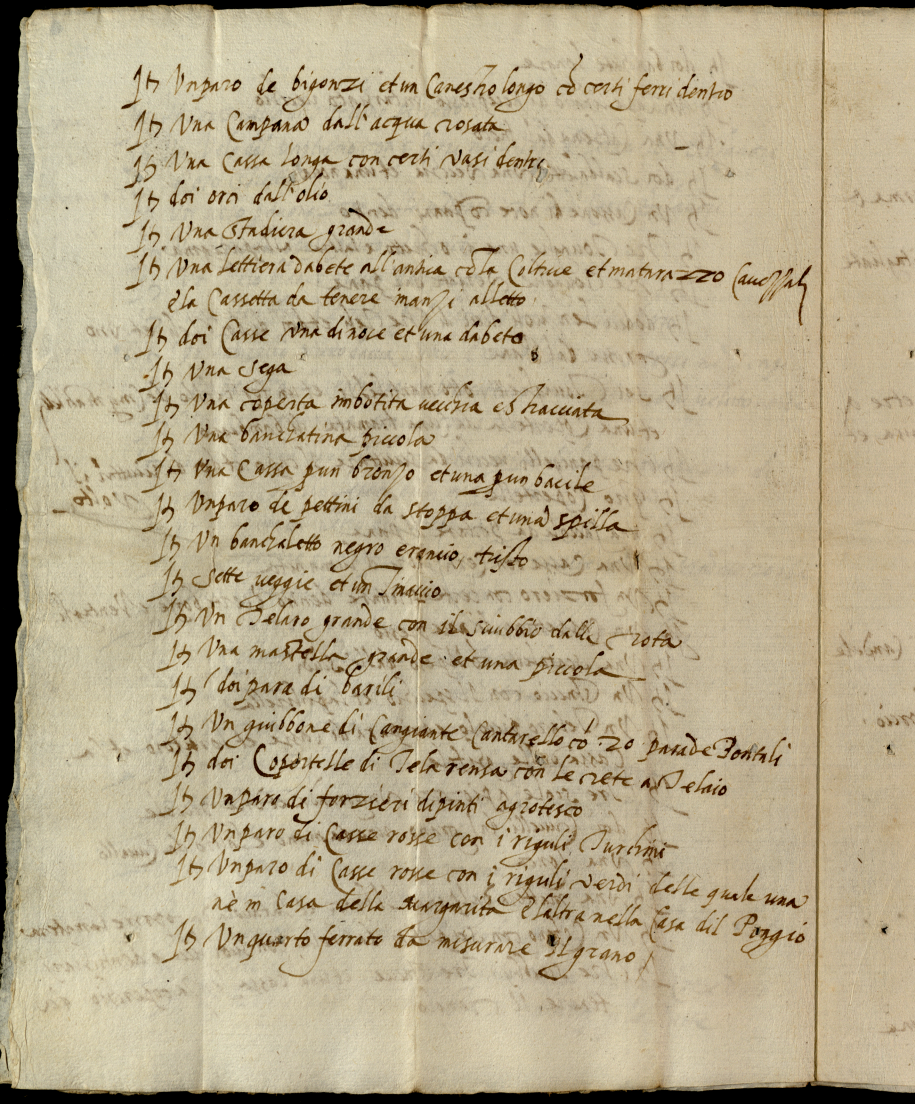 It Un paro de bigonzi et un Canestro longo cõ certi ferri dentro
It Una Campana dall'acqua rosata
It Una Cassa longa con certi vasi dentro
It doi orci dall'olio
It Una stadiera grande
It Una lettiera dabete all'antica cõ la Coltrice et matarazzo Cavezzal
e la Cassetta da tenere inanzi alletto
It doi Casse una di noce et una dabeto
It Una sega
It Una coperta imbotita vecchia e stracciata
It Una banchatina piccola
It Una Cassa p un bronzo et una p un bacile
It Un paro de pettini da stoppa et una spilla
It Un banchaletto negro e rancio, tristo
It Sette veggie et un Tinaccio
It Un Telaro grande con il sciubbio dalla rota
It Una mastella grande et una piccola
It doi para di barili
It Un giubbone di Cangiante Cantarello cõ 20 para de Pontali
It doi Copertelle di Tela rensa con le rete a Telaio
It Un paro di forzieri dipinti a grotesco
It Un paro di Casse rosse con i riguli Turchini
It Un paro di Casse rosse con i riguli verdi delle quale una
n'è in Casa della Margarita e l'altra nella Casa dil Poggio
It Un quarto ferrato da misurare Il grano